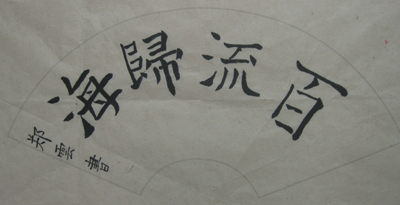 百流歸海
郑雲書